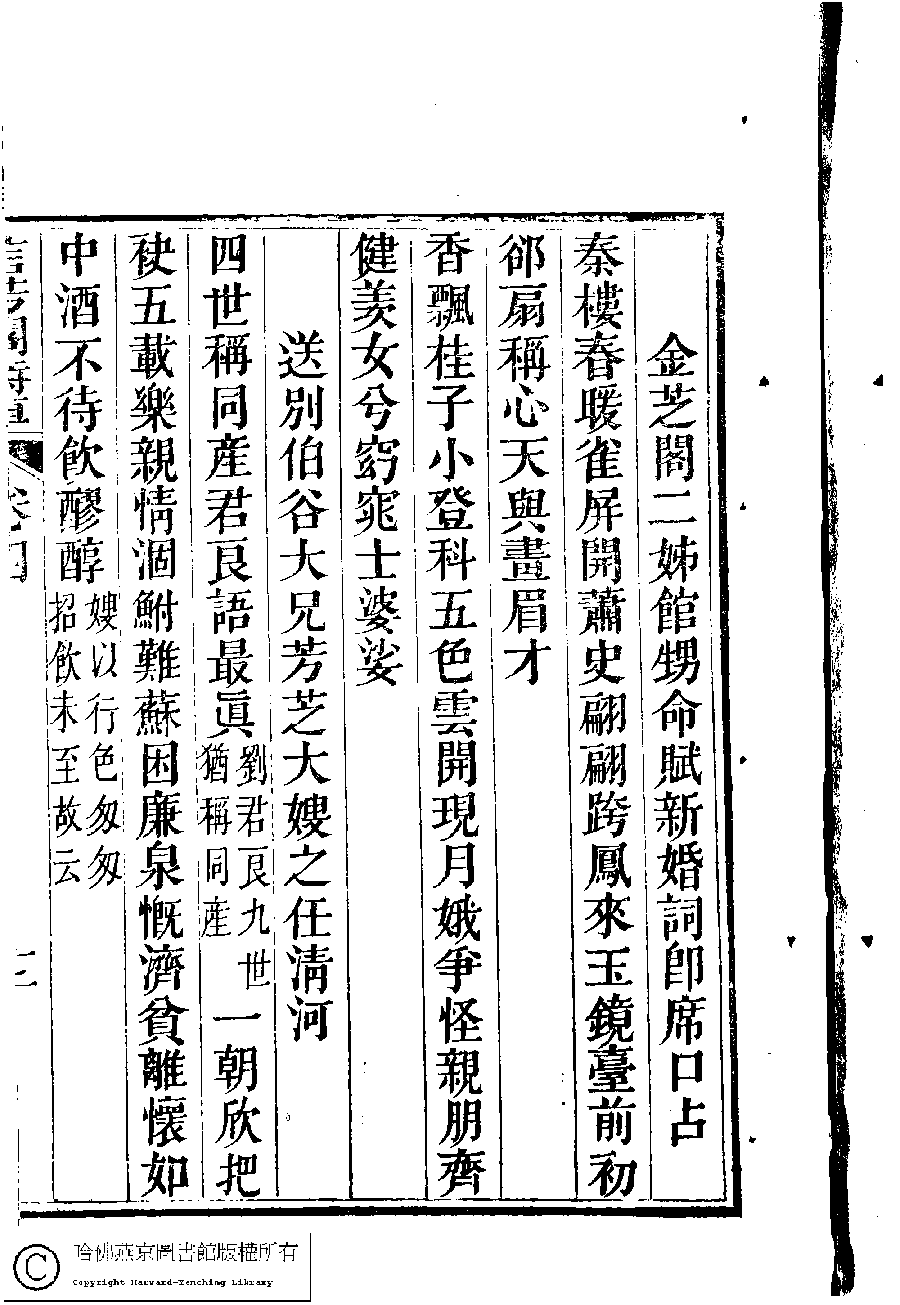 金芝閣二姊館甥命賦新婚詞卽席口占
秦樓春暖雀屏開蕭史翩翩跨鳳來玉鏡臺前初
卻扇稱心天與畫眉才
香飄桂子小登科五色雲開現月娥爭怪親朋齊
健羨女兮窈窕士婆娑
送別伯谷大兄芳芝大嫂之任清河
四世稱同產君良語最眞劉君良九世猶稱同產一朝欣把
袂五載樂親情涸鮒難蘇困廉泉慨濟貧離懷如
中酒不待飮醪醇嫂以行色匆匆招飮未至故云
卷四
哈佛燕京圖書館版權所有
Copyright Harvard-Yenching Library